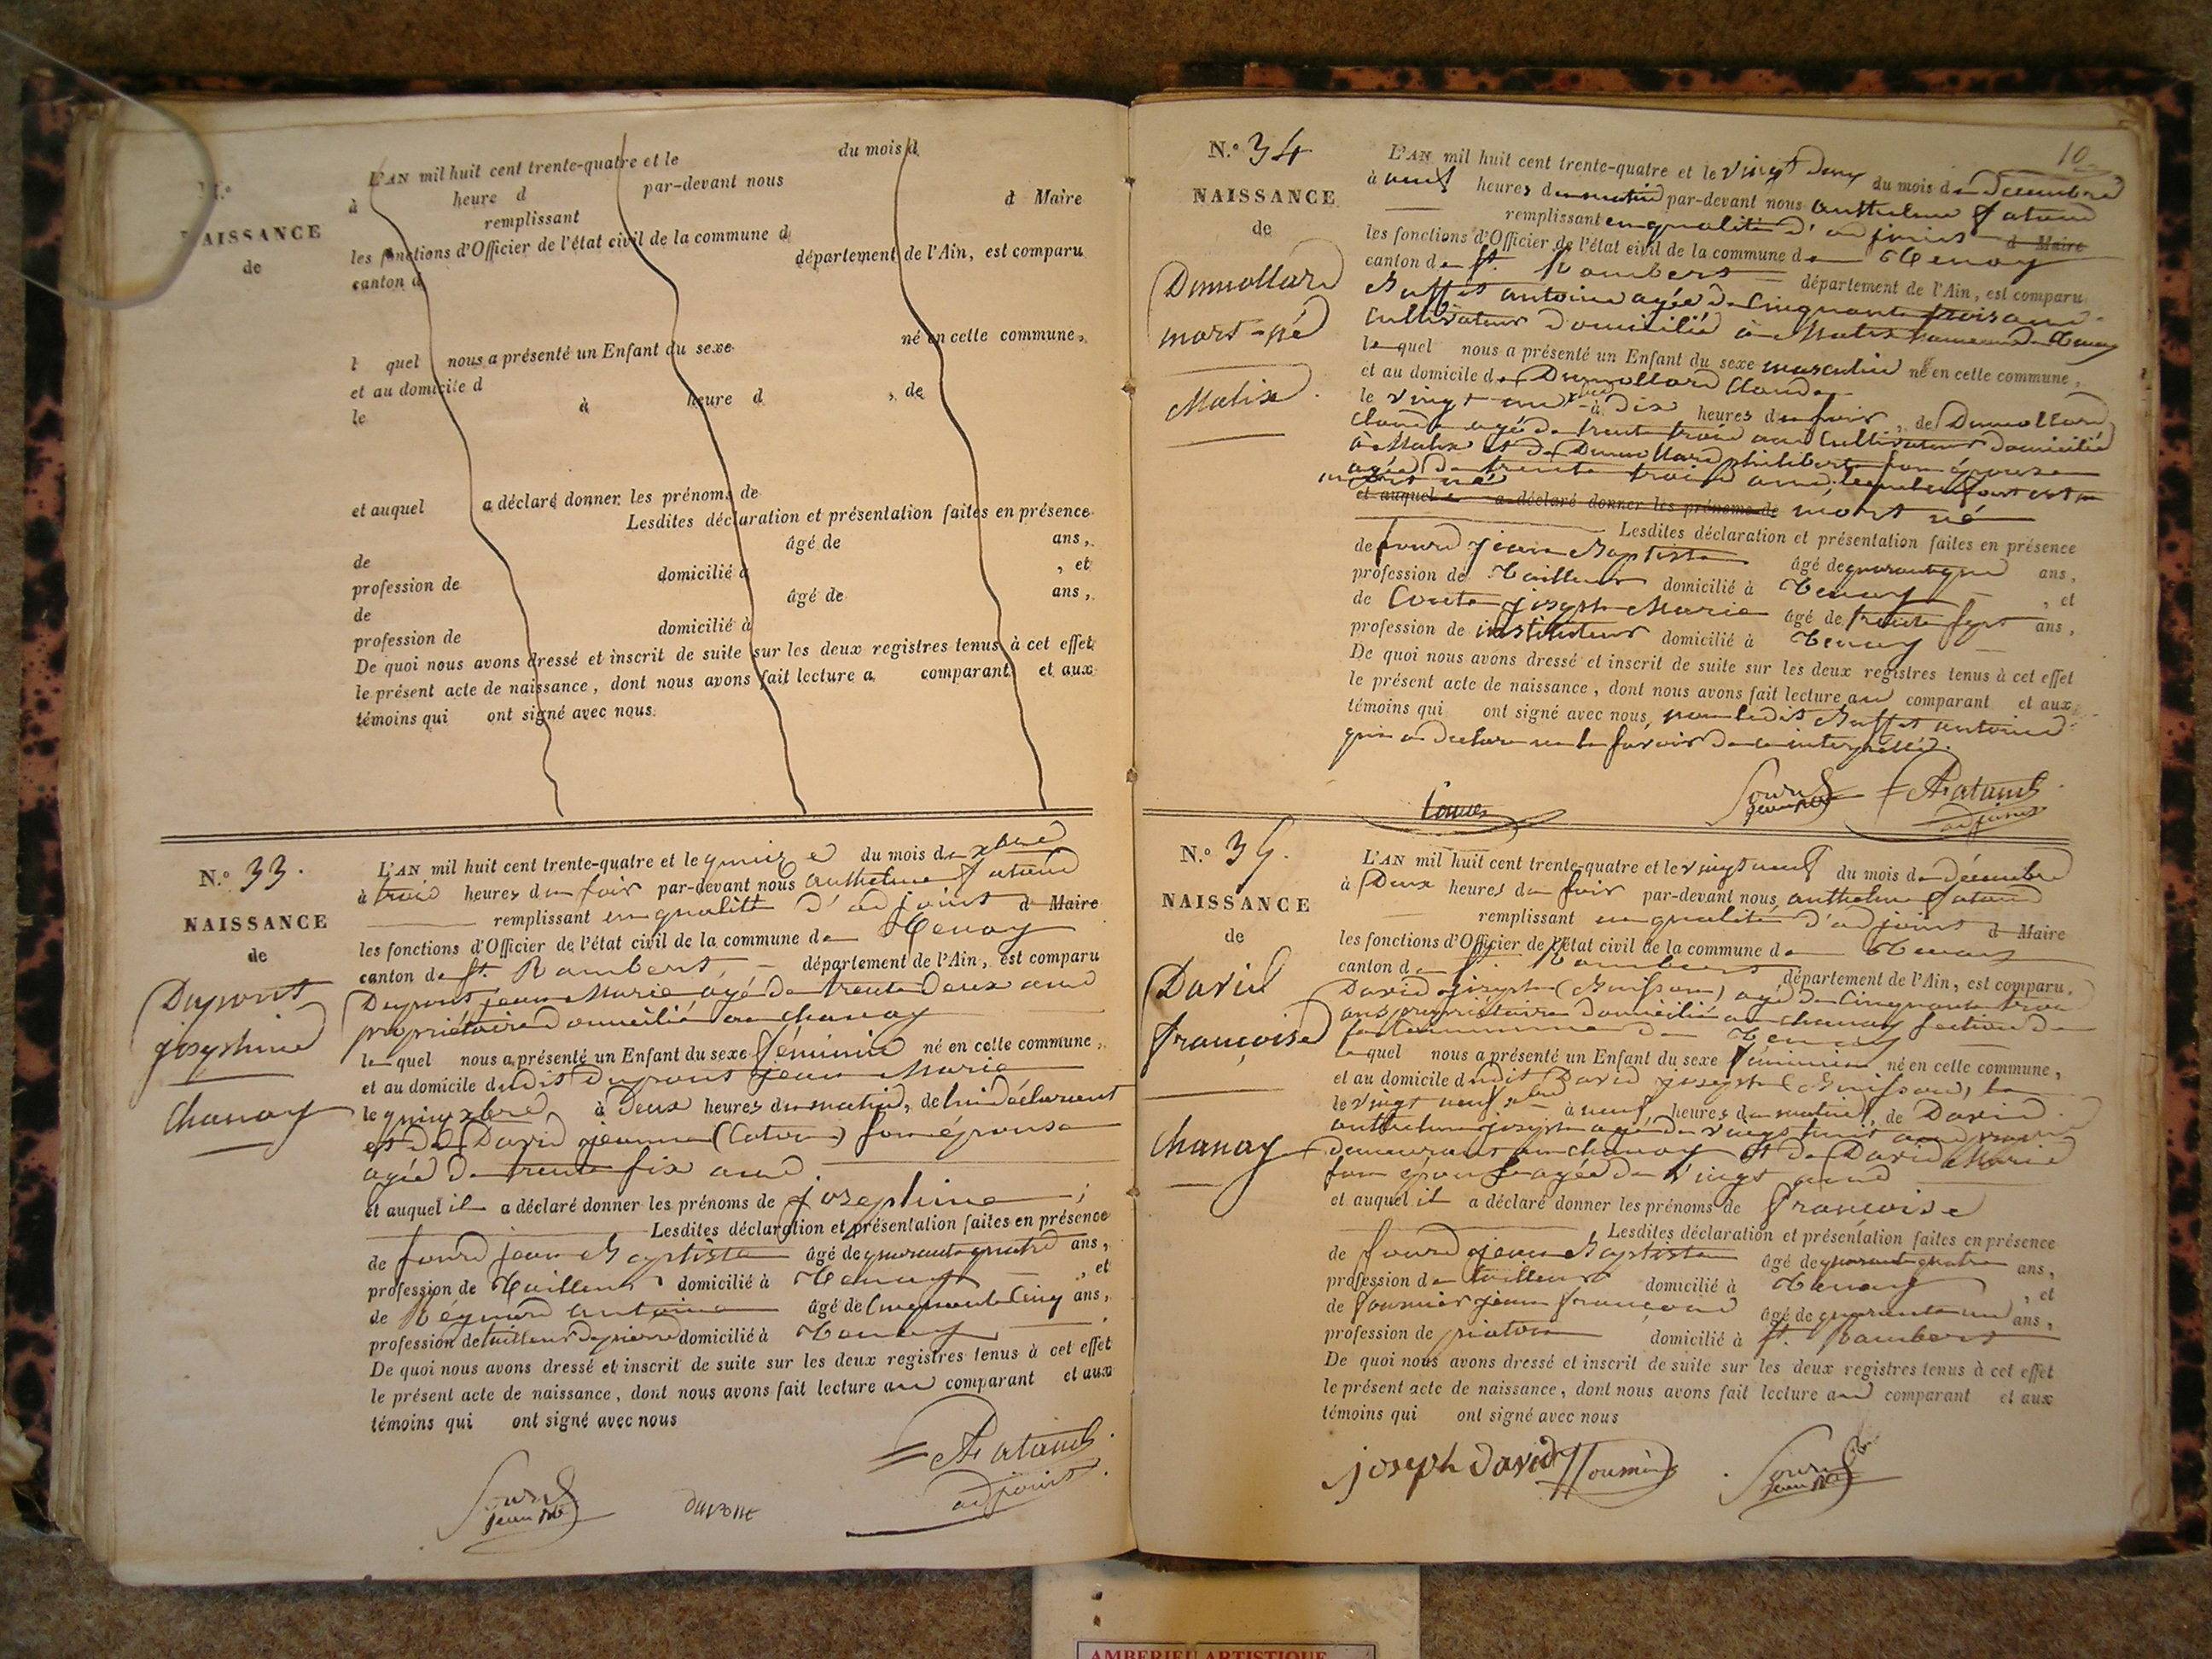 N.°
NAISSANCE
de
L'AN mil huit cent trente-quatre et le du mois d
à heure d par-devant nous
d Maire
remplissant
les fonctions d'Officier de l'état civil de la commune d
canton d département de l'Ain, est comparu
l quel nous a présenté un Enfant du sexe né en cette commune,
et au domicile d
le à heure d , de
et auquel a déclaré donner les prénoms de
Lesdites déclaration et présentation faites en présence
de âgé de ans,
profession de domicilié à , et
de âgé de ans,
profession de domicilié à
De quoi nous avons dressé et inscrit de suite sur les deux registres tenus à cet effet
le présent acte de naissance, dont nous avons fait lecture a comparant et aux
témoins qui ont signé avec nous.
N.° 33.
NAISSANCE
de
Dupont
josephine
Chanay
L'AN mil huit cent trente-quatre et le quinze du mois de xbre
à trois heures du soir par-devant nous anthelme
remplissant en qualité d'adjoint d Maire
les fonctions d'Officier de l'état civil de la commune de Tenay
canton de St. Rambert, département de l'Ain, est comparu
Dupont jean Marie agé de trente Deux ans
propriétaire Domicilié au chanay
lequel nous a présenté un Enfant du sexe féminin né en cette commune,
et au domicile dudit Dupont jean Marie
le quinze xbre à Deux heures du matin, de lui déclarant
et de David jeanne son épouse
agée de trente six ans
et auquel il a déclaré donner les prénoms de josephine ;
Lesdites déclaration et présentation faites en présence
de jean Baptiste âgé de quarante quatre ans,
profession de Tailleur domicilié à Tenay , et
de antoine âgé de Cinquante Cinq ans,
profession de tailleur de pierre domicilié à Tenay
De quoi nous avons dressé et inscrit de suite sur les deux registres tenus à cet effet
le présent acte de naissance, dont nous avons fait lecture aux comparant et aux
témoins qui ont signé avec nous
adjoint
10
N.° 34
NAISSANCE
de
Dumollard
mort-né
Malix
L'AN mil huit cent trente-quatre et le vingt Deux du mois de décembre
à neuf heures du matin par-devant nous anthelme
remplissant en qualité d'adjoint d Maire
les fonctions d'Officier de l'état civil de la commune de Tenay
canton de St. Rambert département de l'Ain, est comparu
Buffet antoine agé de Cinquante trois ans
Cultivateur Domicilié à Malix hameau de Tenay
lequel nous a présenté un Enfant du sexe masculin né en cette commune,
et au domicile de Dumollard Claude
le vingt un à Dix heures du soir, de Dumollard
Claude agé de trente trois ans Cultivateur Domicilié
à Malix et de Dumollard philiberte son épouse
agée de trente trois ans, lequel enfant est
mort né
et auquel a déclaré donner les prénoms de mort né
Lesdites déclaration et présentation faites en présence
de jean Baptiste âgé de ans,
profession de Tailleur domicilié à Tenay , et
de joseph Marie âgé de trente sept ans,
profession de instituteur domicilié à Tenay
De quoi nous avons dressé et inscrit de suite sur les deux registres tenus à cet effet
le présent acte de naissance, dont nous avons fait lecture au comparant et aux
témoins qui ont signé avec nous, non ledit Buffet antoine
qui a declaré ne le savoir de ce interpellé.
adjoint
N.° 35.
NAISSANCE
de
David
françoise
Chanay
L'AN mil huit cent trente-quatre et le vingt neuf du mois de décembre
à Deux heures du soir par-devant nous, anthelme
remplissant en qualité d'adjoint d Maire
les fonctions d'Officier de l'état civil de la commune de Tenay
canton de St. Rambert département de l'Ain, est comparu.
David joseph agé de Cinquante trois
ans propriétaire Domicilié au chanay section de
la Commune de Tenay
lequel nous a présenté un Enfant du sexe féminin né en cette commune,
et au domicile dudit David joseph le
le vingt neuf xbre à neuf heures du matin, de David
anthelme joseph agé de vingt huit ans
demeurant au chanay et de David Marie
son épouse agée de vingt ans
et auquel il a déclaré donner les prénoms de françoise
Lesdites déclaration et présentation faites en présence
de jean Baptiste âgé de quarante quatre ans,
profession de tailleur domicilié à Tenay , et
de jean françois âgé de quarante un ans,
profession de pieton domicilié à St. Rambert
De quoi nous avons dressé et inscrit de suite sur les deux registres tenus à cet effet
le présent acte de naissance, dont nous avons fait lecture aux comparant et aux
témoins qui ont signé avec nous
joseph david
AMBERIEU ARTISTIQUE